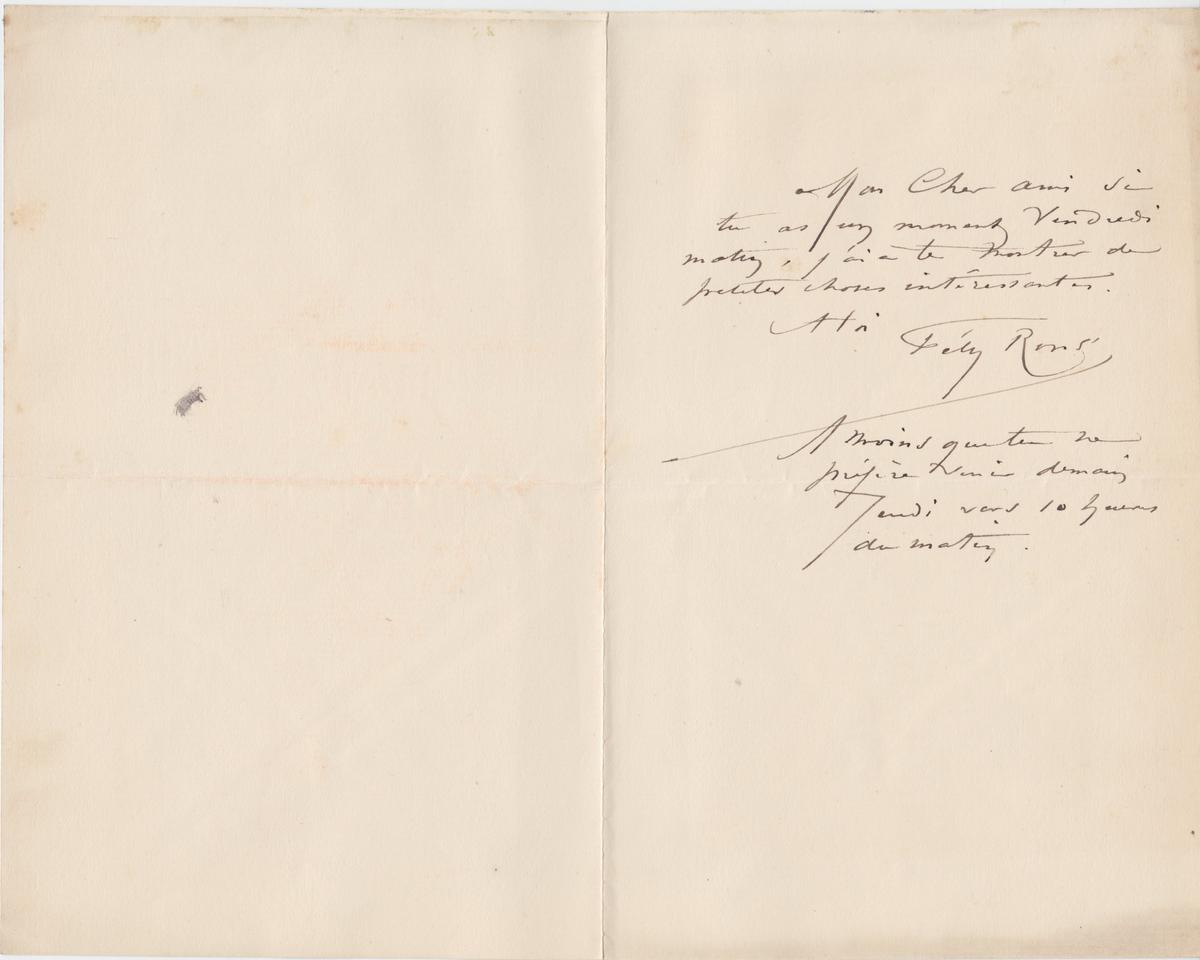 Mon Cher ami si
tu as un moment Vendredi
matin, j'ai a te montrer de
petites choses intéressantes.
A toi Fély Rops
A moins que tu ne
préfère venir demain
Jeudi vers 10 heures
du matin.